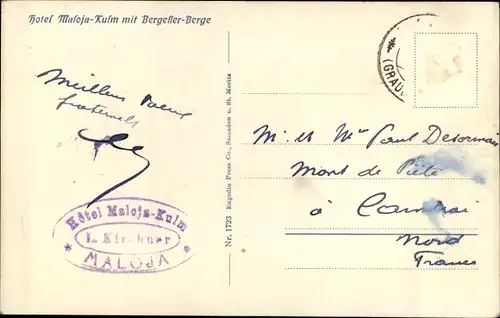 Hotel Maloja-Kulm mit Bergeller-Berge
Meilleurs vœux
fraternels
Hôtel Maloja-Kulm
L. Kirchner
MALOJA
Nr. 1723 Engadin Press Co., Samaden u. St. Moritz
(GRAU
M. et Mme Paul Desormais
Mont de Piété
à Cambrai
Nord
France